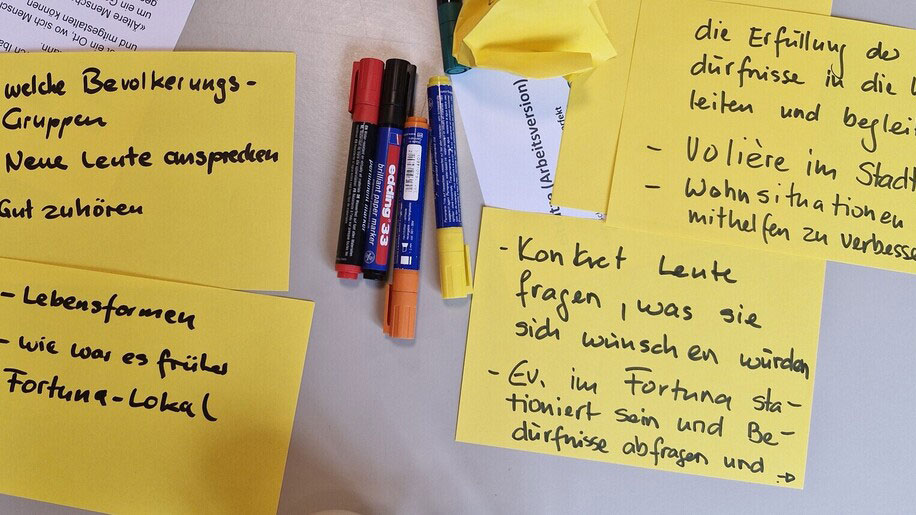 welche Bevölkerungs-
Gruppen
Neue Leute ansprecken
Gut zuhören
- Lebensformen
- wie war es früher
Fortuna-Lokal
edding 33
brilliant paper marker
permanent marker
(Arbeitsversion)
die Erfüllung der
dürfnisse in die
leiten und beglei
- Volière im Stadt
- Wohnsituationen
mithelfen zu verbesse
- Konkret Leute
fragen, was sie
sich wünschen würden
- Ev. im Fortuna sta-
tioniert sein und Be-
dürfnisse abfragen und →
«Ältere Mensch
und mitgestalten können
t ein Ort, wo sich